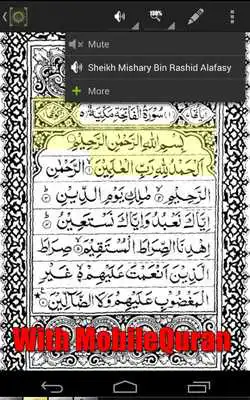 Mute
Sheikh Mishary Bin Rashid Alafasy
More
سورة الفاتحة مكية
بسم الله الرحمن الرحيم
الحمد لله رب العلمين الرحمن
الرحيم ملك يوم الدين
إياك نعبد وإياك نستعين
اهدنا الصراط المستقيم صراط
الذين أنعمت عليهم غير
المغضوب عليهم ولا الضالين
With MobileQuran